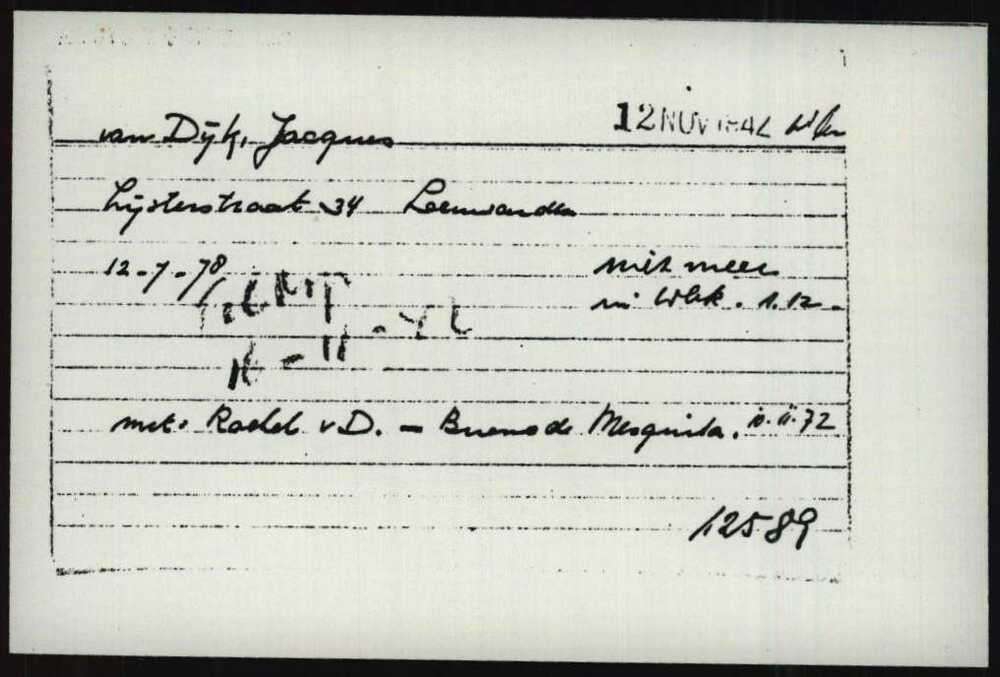 van Dijk, Jacques 12 NOV 1942
Lijsterstraat 34 Leeuwarden
12-7-78 niet meer
in Wbk. 1.12.
16-11-42
met: Rachel v D. - Bueno de Mesquita. 10.11.72
12589